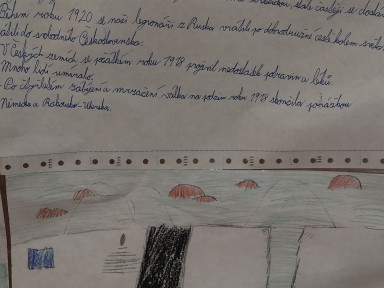 stále častěji se dostáva
Během roku 1920 se naši legionáři z Ruska vrátili po dobrodružné cestě kolem světa
do svobodného Československa.
V Českých zemích se počátkem roku 1918 projevil nedostatek potravin a léků.
Mnoho lidí umíralo.
Po čtyřletém zabíjení a mrzačení válka na podzim roku 1918 skončila porážkou
Německa a Rakouska-Uherska.